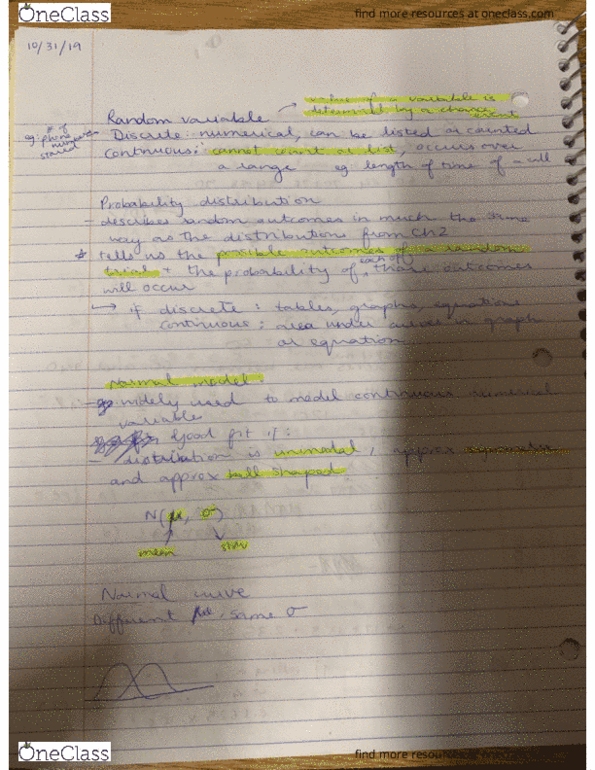 OneClass
find more resources at oneclass.com
10/31/19
value of a variable is
determined by a chance
event
Random variable →
eg: # of
phone
numbers
stored
- Discrete: numerical, can be listed or counted
Continuous: cannot count or list, occurs over
a range eg: length of time of a call
Probability distribution
- describes random outcomes in much the same
way as the distributions from Ch2
* tells us the possible outcomes of a random
trial + the probability of each of those outcomes
will occur
↳ if discrete: tables, graphs, equations
continuous: area under curves in graph
or equation
Normal model:
- widely used to model continuous numerical
variable
Good fit if:
- distribution is unimodal, approx symmetric
and approx bell shaped
N(μ, σ)
mean
stdv
Normal curve
Different μ, same σ
OneClass
find more resources at oneclass.com